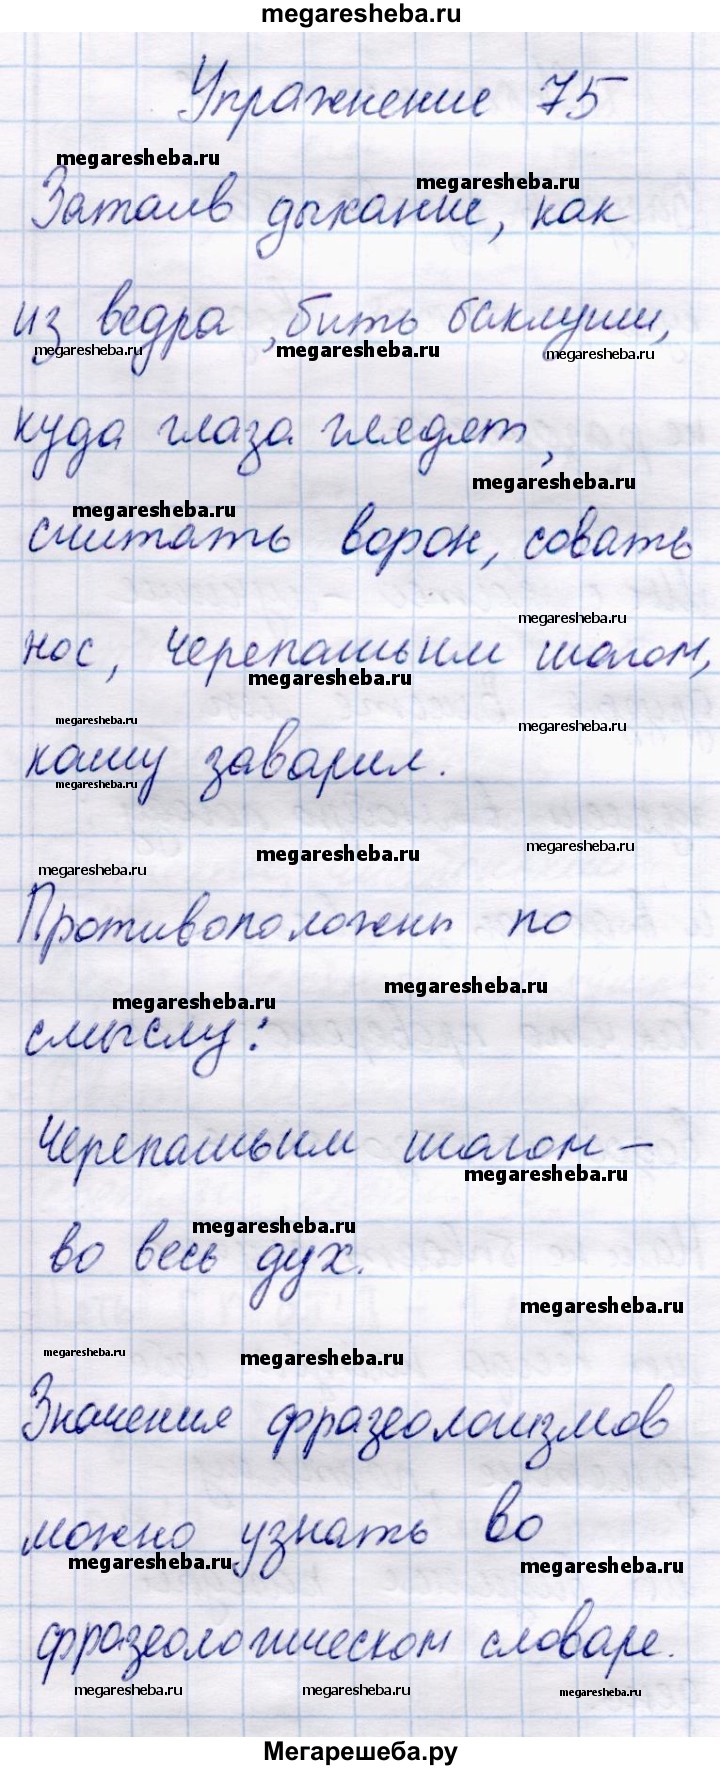 megaresheba.ru
Упражнение 75
megaresheba.ru
megaresheba.ru
Затаив дыхание, как
из ведра, бить баклуши,
megaresheba.ru megaresheba.ru megaresheba.ru
куда глаза глядят,
megaresheba.ru
megaresheba.ru
считать ворон, совать
megaresheba.ru
нос, черепашьим шагом,
megaresheba.ru
megaresheba.ru megaresheba.ru
кашу заварил.
megaresheba.ru
megaresheba.ru megaresheba.ru
megaresheba.ru
Противоположны по
megaresheba.ru
megaresheba.ru
смыслу:
Черепашьим шагом –
megaresheba.ru
megaresheba.ru
во весь дух.
megaresheba.ru
megaresheba.ru megaresheba.ru
Значения фразеологизмов
можно узнать во
megaresheba.ru megaresheba.ru
фразеологическом словаре.
megaresheba.ru megaresheba.ru megaresheba.ru
Мегарешеба.ру